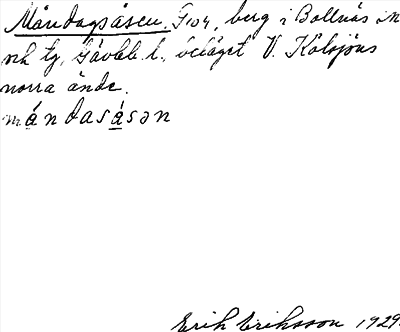 Måndagsåsen. F104, berg i Bollnäs sn
och tg, Gävleb. l., beläget V. Kolsjöns
norra ände.
mándasásən
Erik Eriksson 1929.